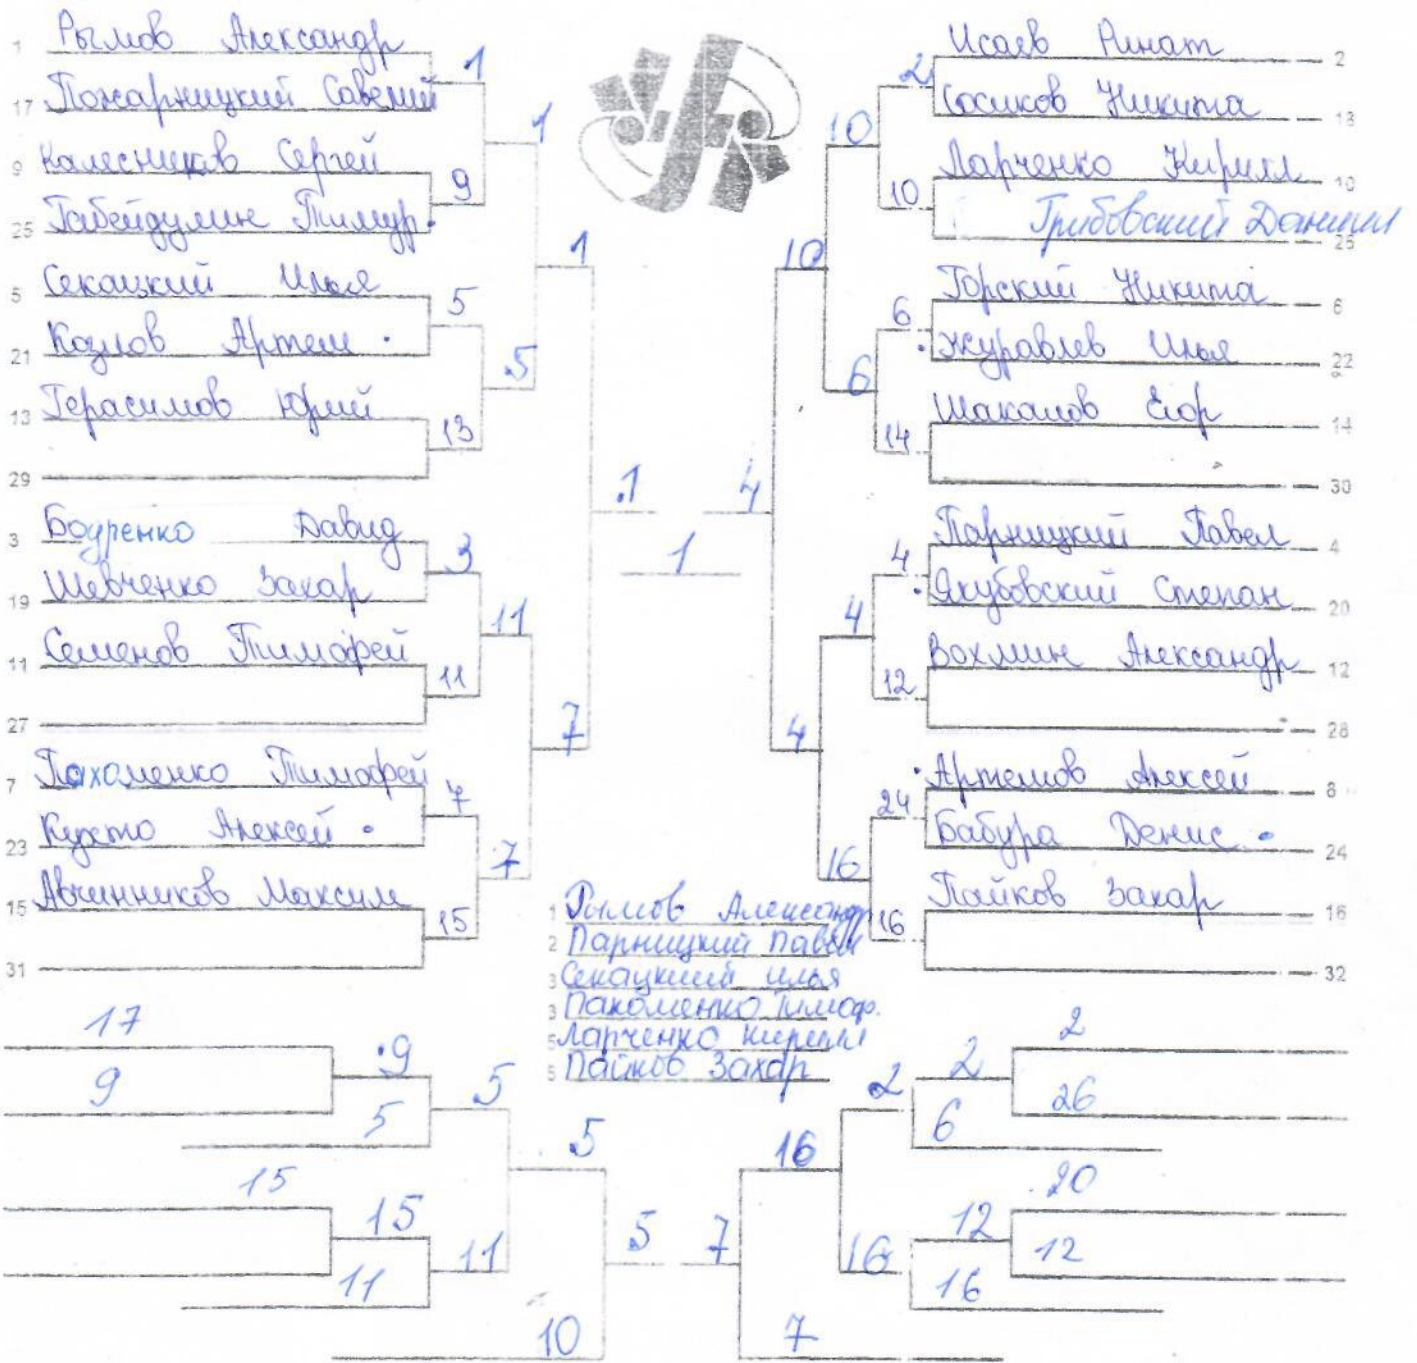 1 Рымов Александр
17 Пожарницкий Савелий
1
9 Калесников Сергей
25 Габейдулин Тимур.
9
1
5 Секацкий Илья
21 Козлов Артем .
5
13 Герасимов Юрий
29
13
.5
1
3 Боуренко Давид
19 Шевченко Захар
3
11 Семенов Тимофей
27
11
11
7 Пахоменко Тимофей
23 Кухто Алексей .
7
15 Авчинников Максим
31
15
.7
7
.1
1
4
Исаев Ринат 2
Сосиков Никита 18
2
Ларченко Кирилл 10
Грибовский Даниил 26
10
10
Горский Никита 6
.Журавлев Илья 22
6
Шакалов Егор 14
30
14
6
10
Парницкий Павел 4
.Якубовский Степан 20
4
Вохмин Александр 12
28
12
4
.Артемов Алексей 8
Бабура Денис . 24
24
Пайков Захар 16
32
16
16
4
1 Рымов Александр
2 Парницкий Павел
3 Секацкий Илья
3 Пахоменко Тимоф.
5 Ларченко Кирилл
5 Пайков Захар
17
9
.9
5
5
15
15
11
11
.5
10
.5
7
2
26
2
6
.2
.20
12
12
16
16
16
7